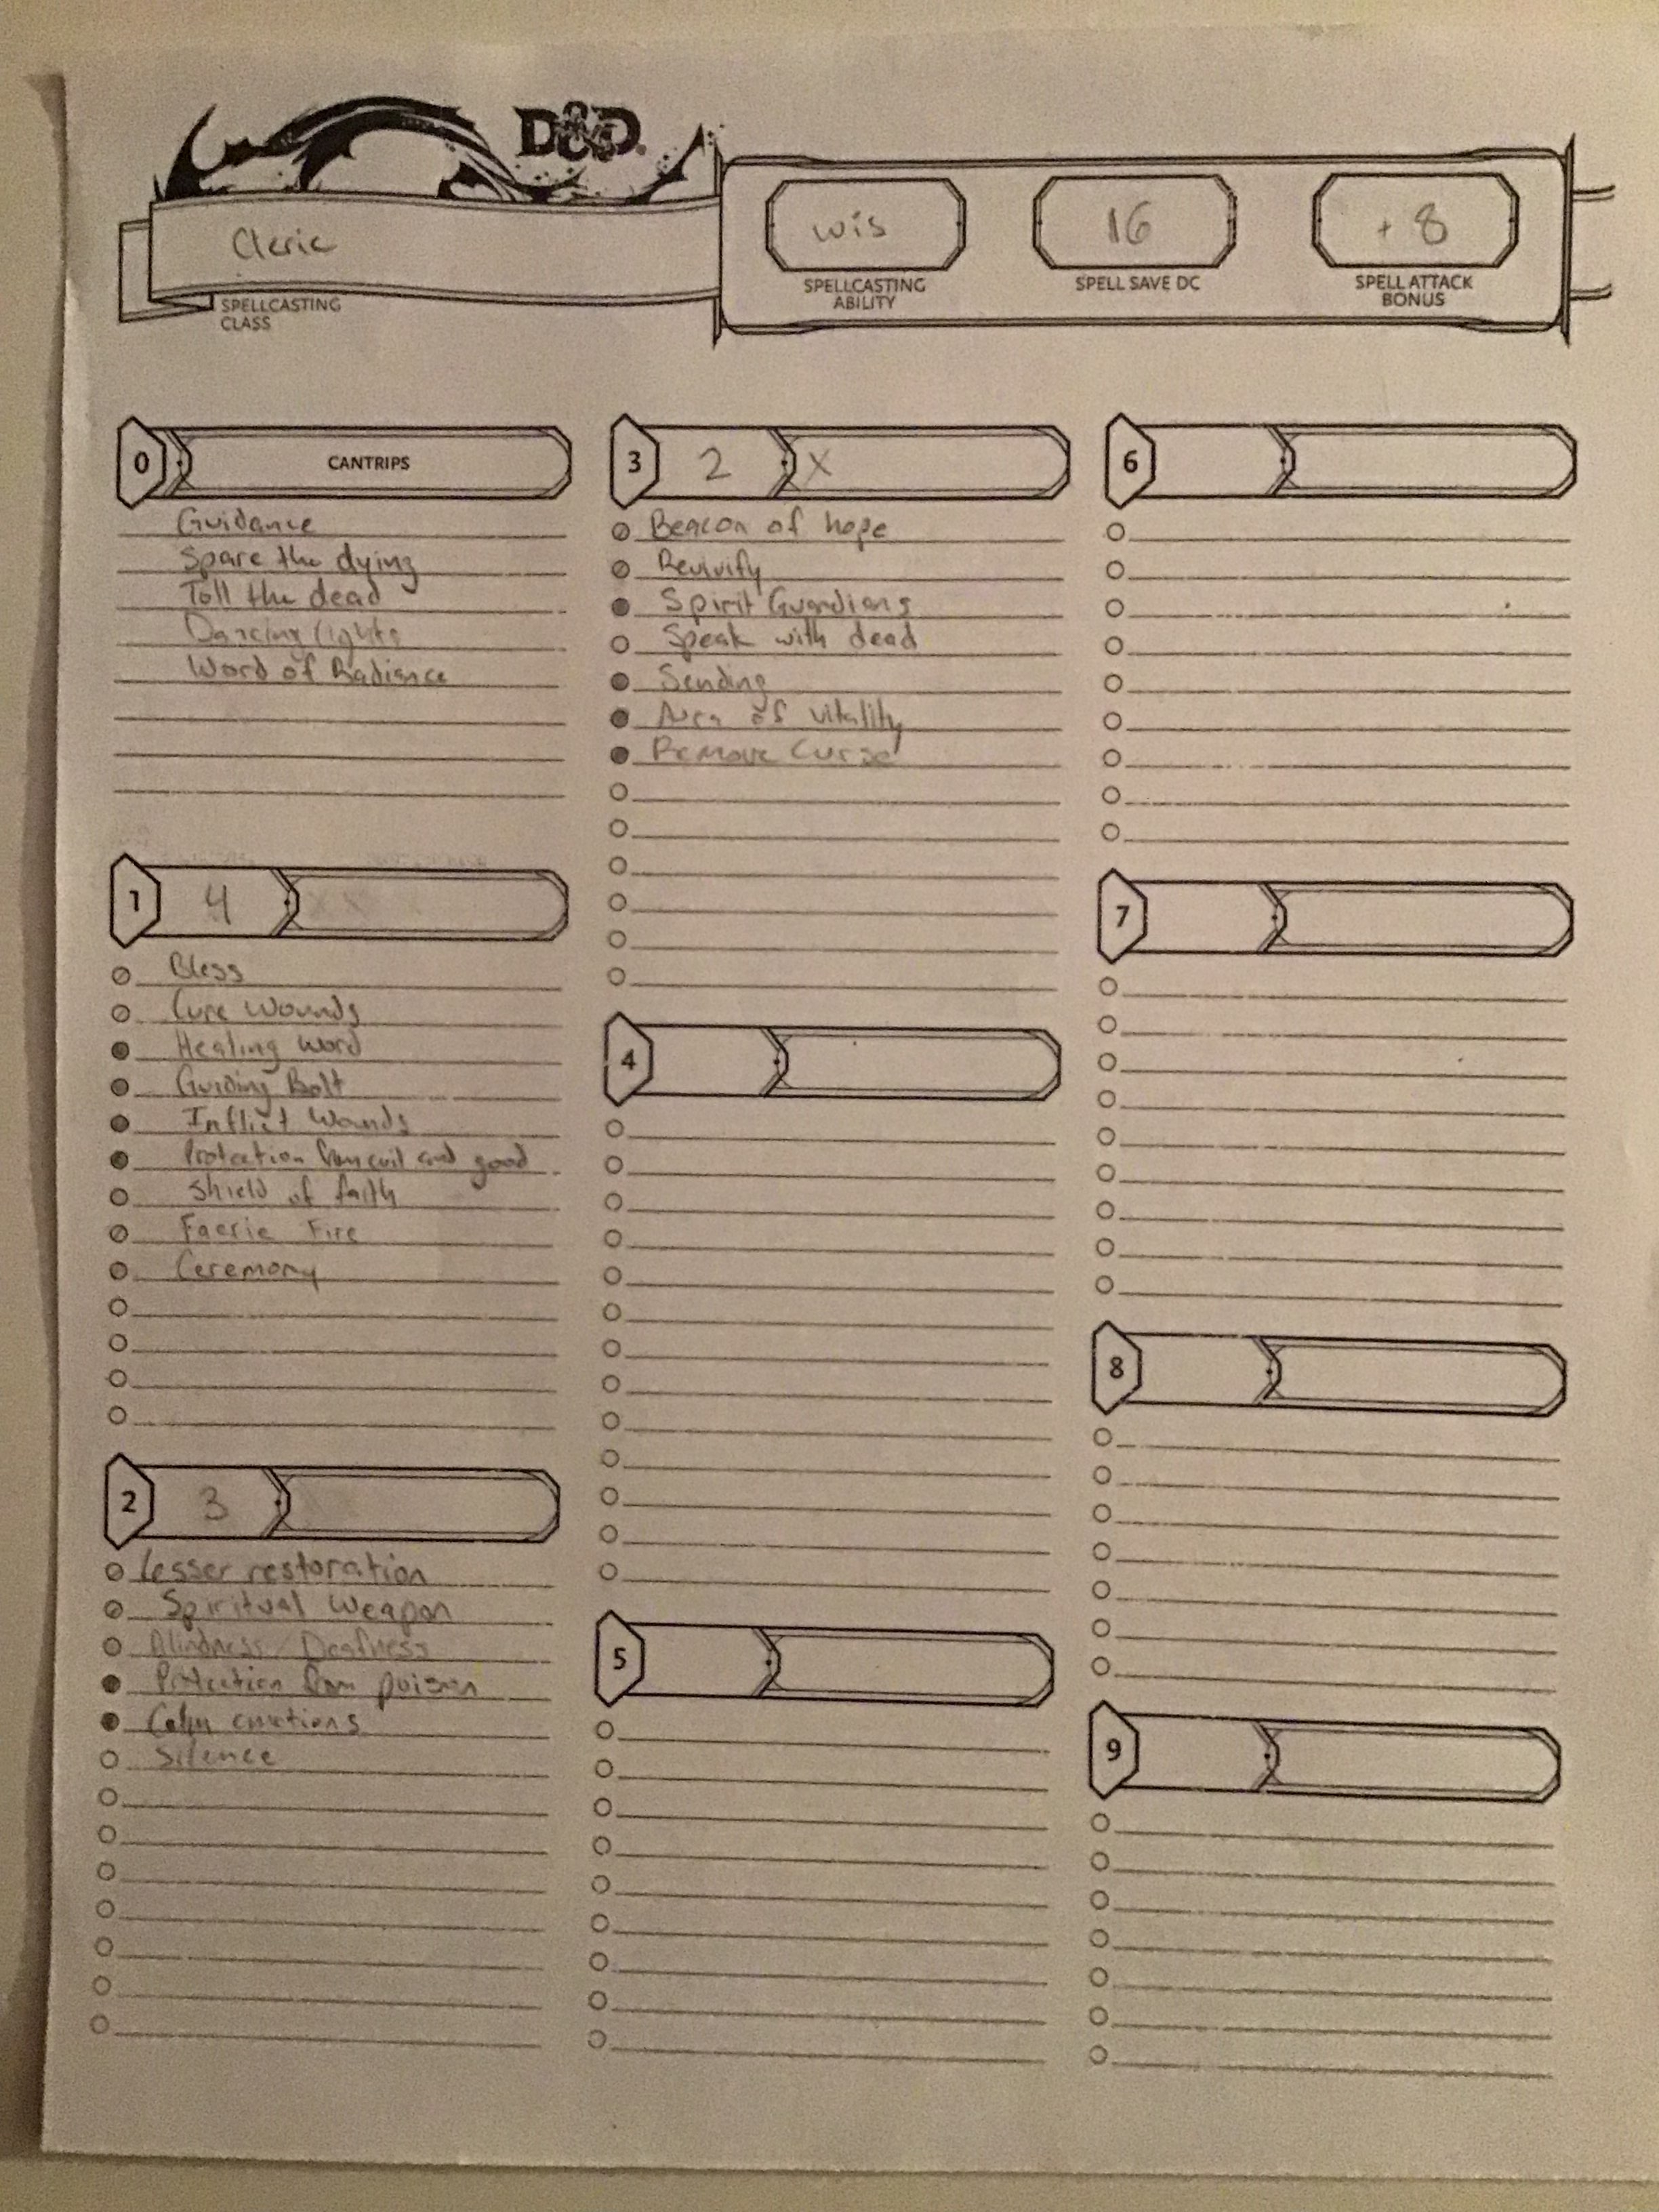 D&D
Cleric
SPELLCASTING
CLASS
wis
SPELLCASTING
ABILITY
16
SPELL SAVE DC
+8
SPELL ATTACK
BONUS
0 CANTRIPS
Guidance
Spare the dying
Toll the dead
Dancing lights
Word of Radiance
1 4
Bless
Cure Wounds
Healing word
Guiding Bolt
Inflict Wounds
Protection from evil and good
Shield of faith
Faerie Fire
Ceremony
2 3
Lesser restoration
Spiritual Weapon
Blindness/Deafness
Protection from poison
Calm emotions
Silence
3 2 X
Beacon of hope
Revivify
Spirit Guardians
Speak with dead
Sending
Aura of vitality
Remove Curse
4
5
6
7
8
9